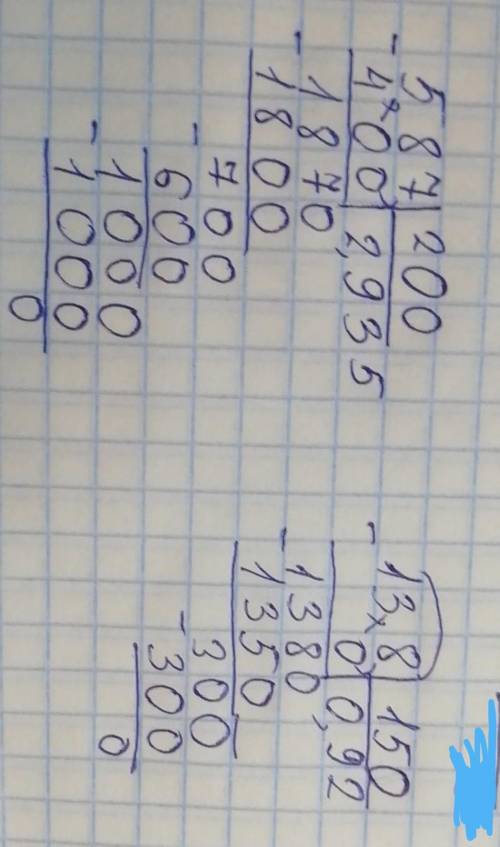 -587 200
400 2,935
-1870
1800
-700
600
-1000
1000
0
-138 150
0 0,92
-1380
1350
-300
300
0